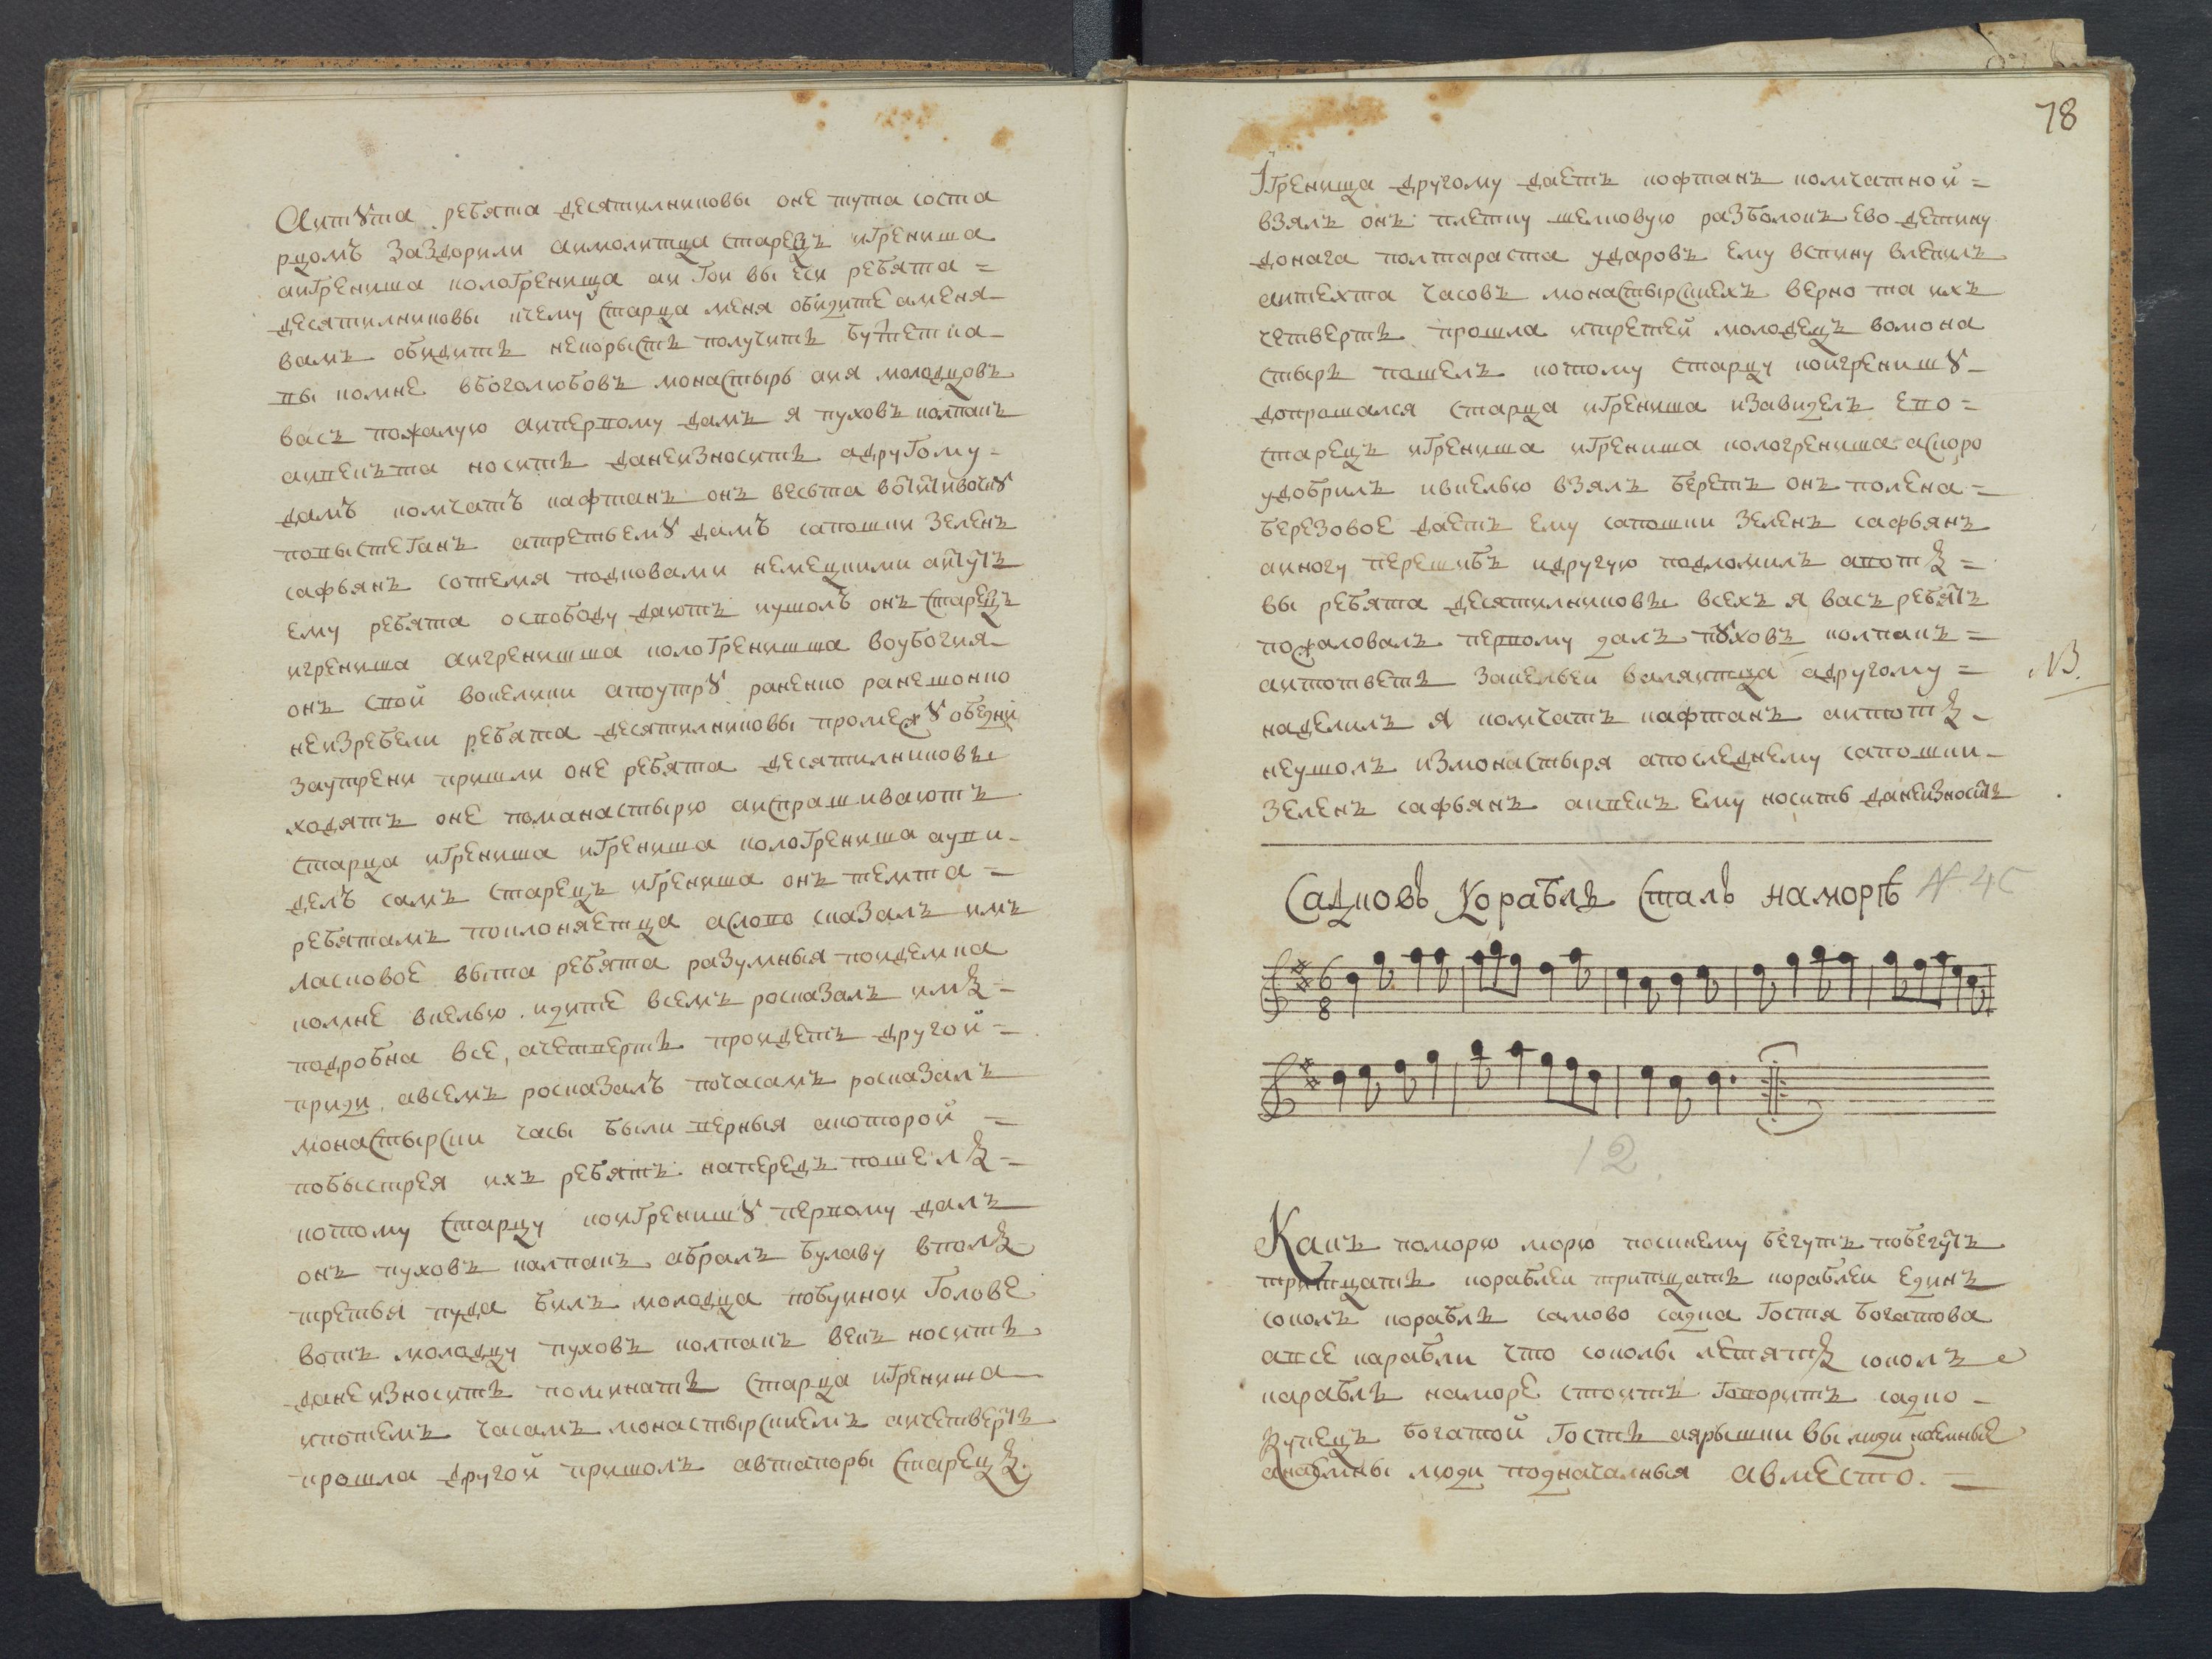 Аитꙋта ребята десятилниковы оне тута соста
рцомъ заздорили аимолитца старецъ игрениша
аигрениша кологрениша аи гои вы еси ребята =
десятилниковы ичему старца меня обидите аменя
вамъ обидить некорысть получить будетка
вы комне вбоголюбовъ монастырь аия молодцовъ
васъ пожалую аипервому дамъ я пуховъ колпакъ
аивекъта носить данеизносить адругому =
дамъ комчатъ кафтанъ онъ весьта
повыстеганъ атретьемꙋ дамъ сапошки зеленъ
сафьянъ сотемя подковами немецкими аитутъ
ему ребята ослободу даютъ иушолъ онъ старецъ
игрениша аигренишша кологренишша воубогия
онъ свои вокелики апоутрꙋ раненко ранешонко
неизребели ребята десятилниковы промежꙋ обедни
заутрени пришли оне ребята десятилниковы
ходятъ оне поманастырю аиспрашиваютъ
старца игрениша игрениша кологрениша ауви
делъ самъ старецъ игрениша онъ темта =
ребятамъ поклоняетца аслово сказалъ имъ
ласковое выта ребята разумныя пойдемка
комне вкелью. идите всемъ росказалъ имъ =
подробна все, ачетверть пройдетъ другой =
приди, авсемъ росказалъ почасамъ росказалъ
монастырски часы были верныя акоторой =
побыстрея ихъ ребятъ напередъ пошелъ =
котому старцу коигренишꙋ первому далъ
онъ пуховъ калпакъ абралъ булаву вполъ
третья пуда билъ молодца побуйной голове
вотъ молодцу пуховъ колпакъ векъ носить
данеизносить поминать старца игрениша
ипотемъ часамъ монастырскиемъ аичетверть
прошла другой пришолъ автапоры старецъ
78
Игренища другому даетъ кофтанъ комчатной =
взялъ онъ плетку шелковую разболокъ ево детину
донага полтараста ударовъ ему вспину влепилъ
аитехта часовъ монастырскиехъ верно та ихъ
четверть прошла итретей молодецъ вомона
стырь пошелъ котому старцу коигренишꙋ
допрошался старца игрениша изавиделъ ево =
старецъ игрениша игрениша кологрениша аскоро
удобрилъ ивкелью взялъ беретъ онъ полена =
березовое даетъ ему сапошки зеленъ сафьянъ
аиногу перешибъ идругую подломилъ авотъ =
вы ребята десятилниковы всехъ я васъ ребятъ
пожаловалъ первому далъ пꙋховъ колпакъ =
аитответь закельеи валяитца адругому = NB.
наделилъ я комчатъ кафтанъ аитотъ
неушолъ измонастыря апоследнему сапошки
зеленъ сафьянъ аивекъ ему носить данеизносить
Садковъ корабль сталъ наморѣ N. 45
6
8
12
Какъ поморю морю посинему бегутъ побегутъ
тритцать кораблеи тритцать кораблеи единъ
соколъ корабль самово садка гостя богатова
авсе карабли что соколы летятъ соколъ
карабль наморе стоитъ говоритъ садко
Купецъ богатой гость аярышки вы люди наемные
анаемны люди подначалныя авместо. =